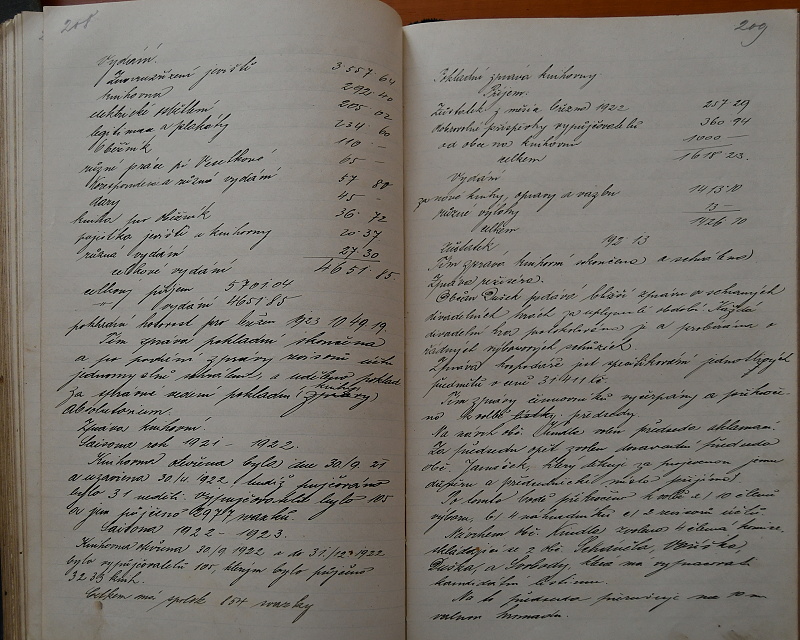 208
Vydání.
Znovuzřízení jeviště 3557·64
knihovna 292·40
elektrické osvětlení 205 02
legitimace a plakáty 234 60
Oběžník 110 -
různé práce při Veselkově 65 -
Korespondence a různá vydání 57 80
dary 45 -
kniha pro oběžník 36 72
pojistka jeviště a knihovny 20·37
různá vydání 27·30
celkové vydání 4651·85
celkový příjem 5701 04
" vydání 4651 85
pokladní hotovost pro březen 1923 1049 19
Tím zpráva pokladní skončena
a po podání zprávy revisorů účtů
jednomyslně schválena, a uděleno poklad
za správné vedení pokladní knihy
absolutorium.
Zpráva knihovní.
Saisona rok 1921 - 1922.
Knihovna otevřena byla dne 30/9. 21
a uzavřena 30/4. 1922. tudíž půjčováno
bylo 31 neděli. Vypujčovatelů bylo 105
a jim půjčeno 2977 svazků.
Saisona 1922 - 1923.
Knihovna otevřena 30/9 1922 a do 31/12 1922
bylo vypujčovatelů 105, kterým bylo půjčeno
3233 knih.
Celkem má spolek 854 svazky
209
Pokladní zpráva knihovny
Příjem:
Zůstatek z měsíce března 1922 257 29
dobrovolné příspěvky vypůjčovatelů 360 94
od obce na knihovnu 1000 -
celkem 1618 23.
Vydání
za nové knihy, opravy a vazbu 1413·10
různé výlohy 13 -
celkem 1426 10
Zůstatek 192 13
Tím zpráva knihovní skončena a schválena.
Zpráva režiséra.
Občan Pušek podává bližší zprávu o sehraných
divadelních hrách za uplynulé období. Každá
divadelní hra je a probírána v
řádných výborových schůzích.
Zpráva hospodáře jest jednotlivých
předmětů v ceně 31411 Kč.
Tím zprávy činovníků vyčerpány a přikročeno
k volbě předsedy.
Na návrh obč. Kindla volen předseda aklamací.
Za předsedu opět zvolen dosavadní předseda
obč. Janeček, který děkuje za projevenou jemu
důvěru a předsednické místo přijímá.
Po tomto bodě přikročeno k volbě a) 10 členů
výboru, b) 4 náhradníků c) 2 revisorů účtů
Návrhem obč. Kindla zvolena 4 členná komise
skládající se z obč.
Puška, a Svobody, která má vypracovati
kandidátní listinu.
Na to předseda
valnou hromadu.